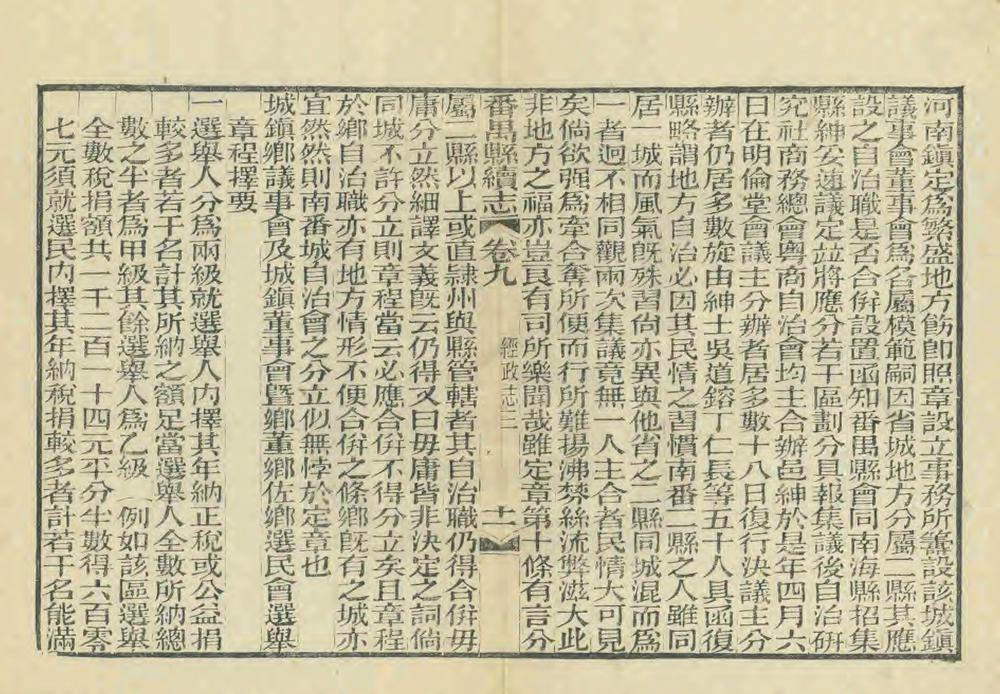 河南鎮定爲繁盛地方飭卽照章設立事務所籌設該城鎮
議事會董事會爲各屬模範嗣因省城地方分屬二縣其應
設之自治職是否合併設置函知番禺縣會同南海縣招集
縣紳妥速議定並將應分若干區劃分具報集議後自治研
究社商務總會粵商自治會均主合辦邑紳於是年四月六
日在明倫堂會議主分辦者居多數十八日復行決議主分
辦者仍居多數旋由紳士吳道鎔丁仁長等五十人具函復
縣略謂地方自治必因其民情之習慣南番二縣之人雖同
居一城而風氣旣殊習尙亦異與他省之二縣同城混而爲
一者迥不相同觀兩次集議竟無一人主合者民情大可見
矣倘欲强爲牽合奪所便而行所難揚沸棼絲流弊滋大此
非地方之福亦豈良有司所樂聞哉雖定章第十條有言分
番禺縣續志 卷九 經政志三 十一
屬二縣以上或直隷州與縣管轄者其自治職仍得合併毋
庸分立然細譯文義旣云仍得又曰毋庸皆非決定之詞倘
同城不許分立則章程當云必應合併不得分立矣且章程
於鄉自治職亦有地方情形不便合併之條鄉旣有之城亦
宜然然則南番城自治會之分立似無悖於定章也
城鎮鄉議事會及城鎮董事會暨鄉董鄉佐鄉選民會選舉
章程擇要
一選舉人分爲兩級就選舉人內擇其年納正稅或公益捐
較多者若干名計其所納之額足當選舉人全數所納總
數之半者爲甲級其餘選舉人爲乙級（例如該區選舉
全數稅捐額共一千二百一十四元平分半數得六百零
七元須就選民內擇其年納稅捐較多者計若干名能滿